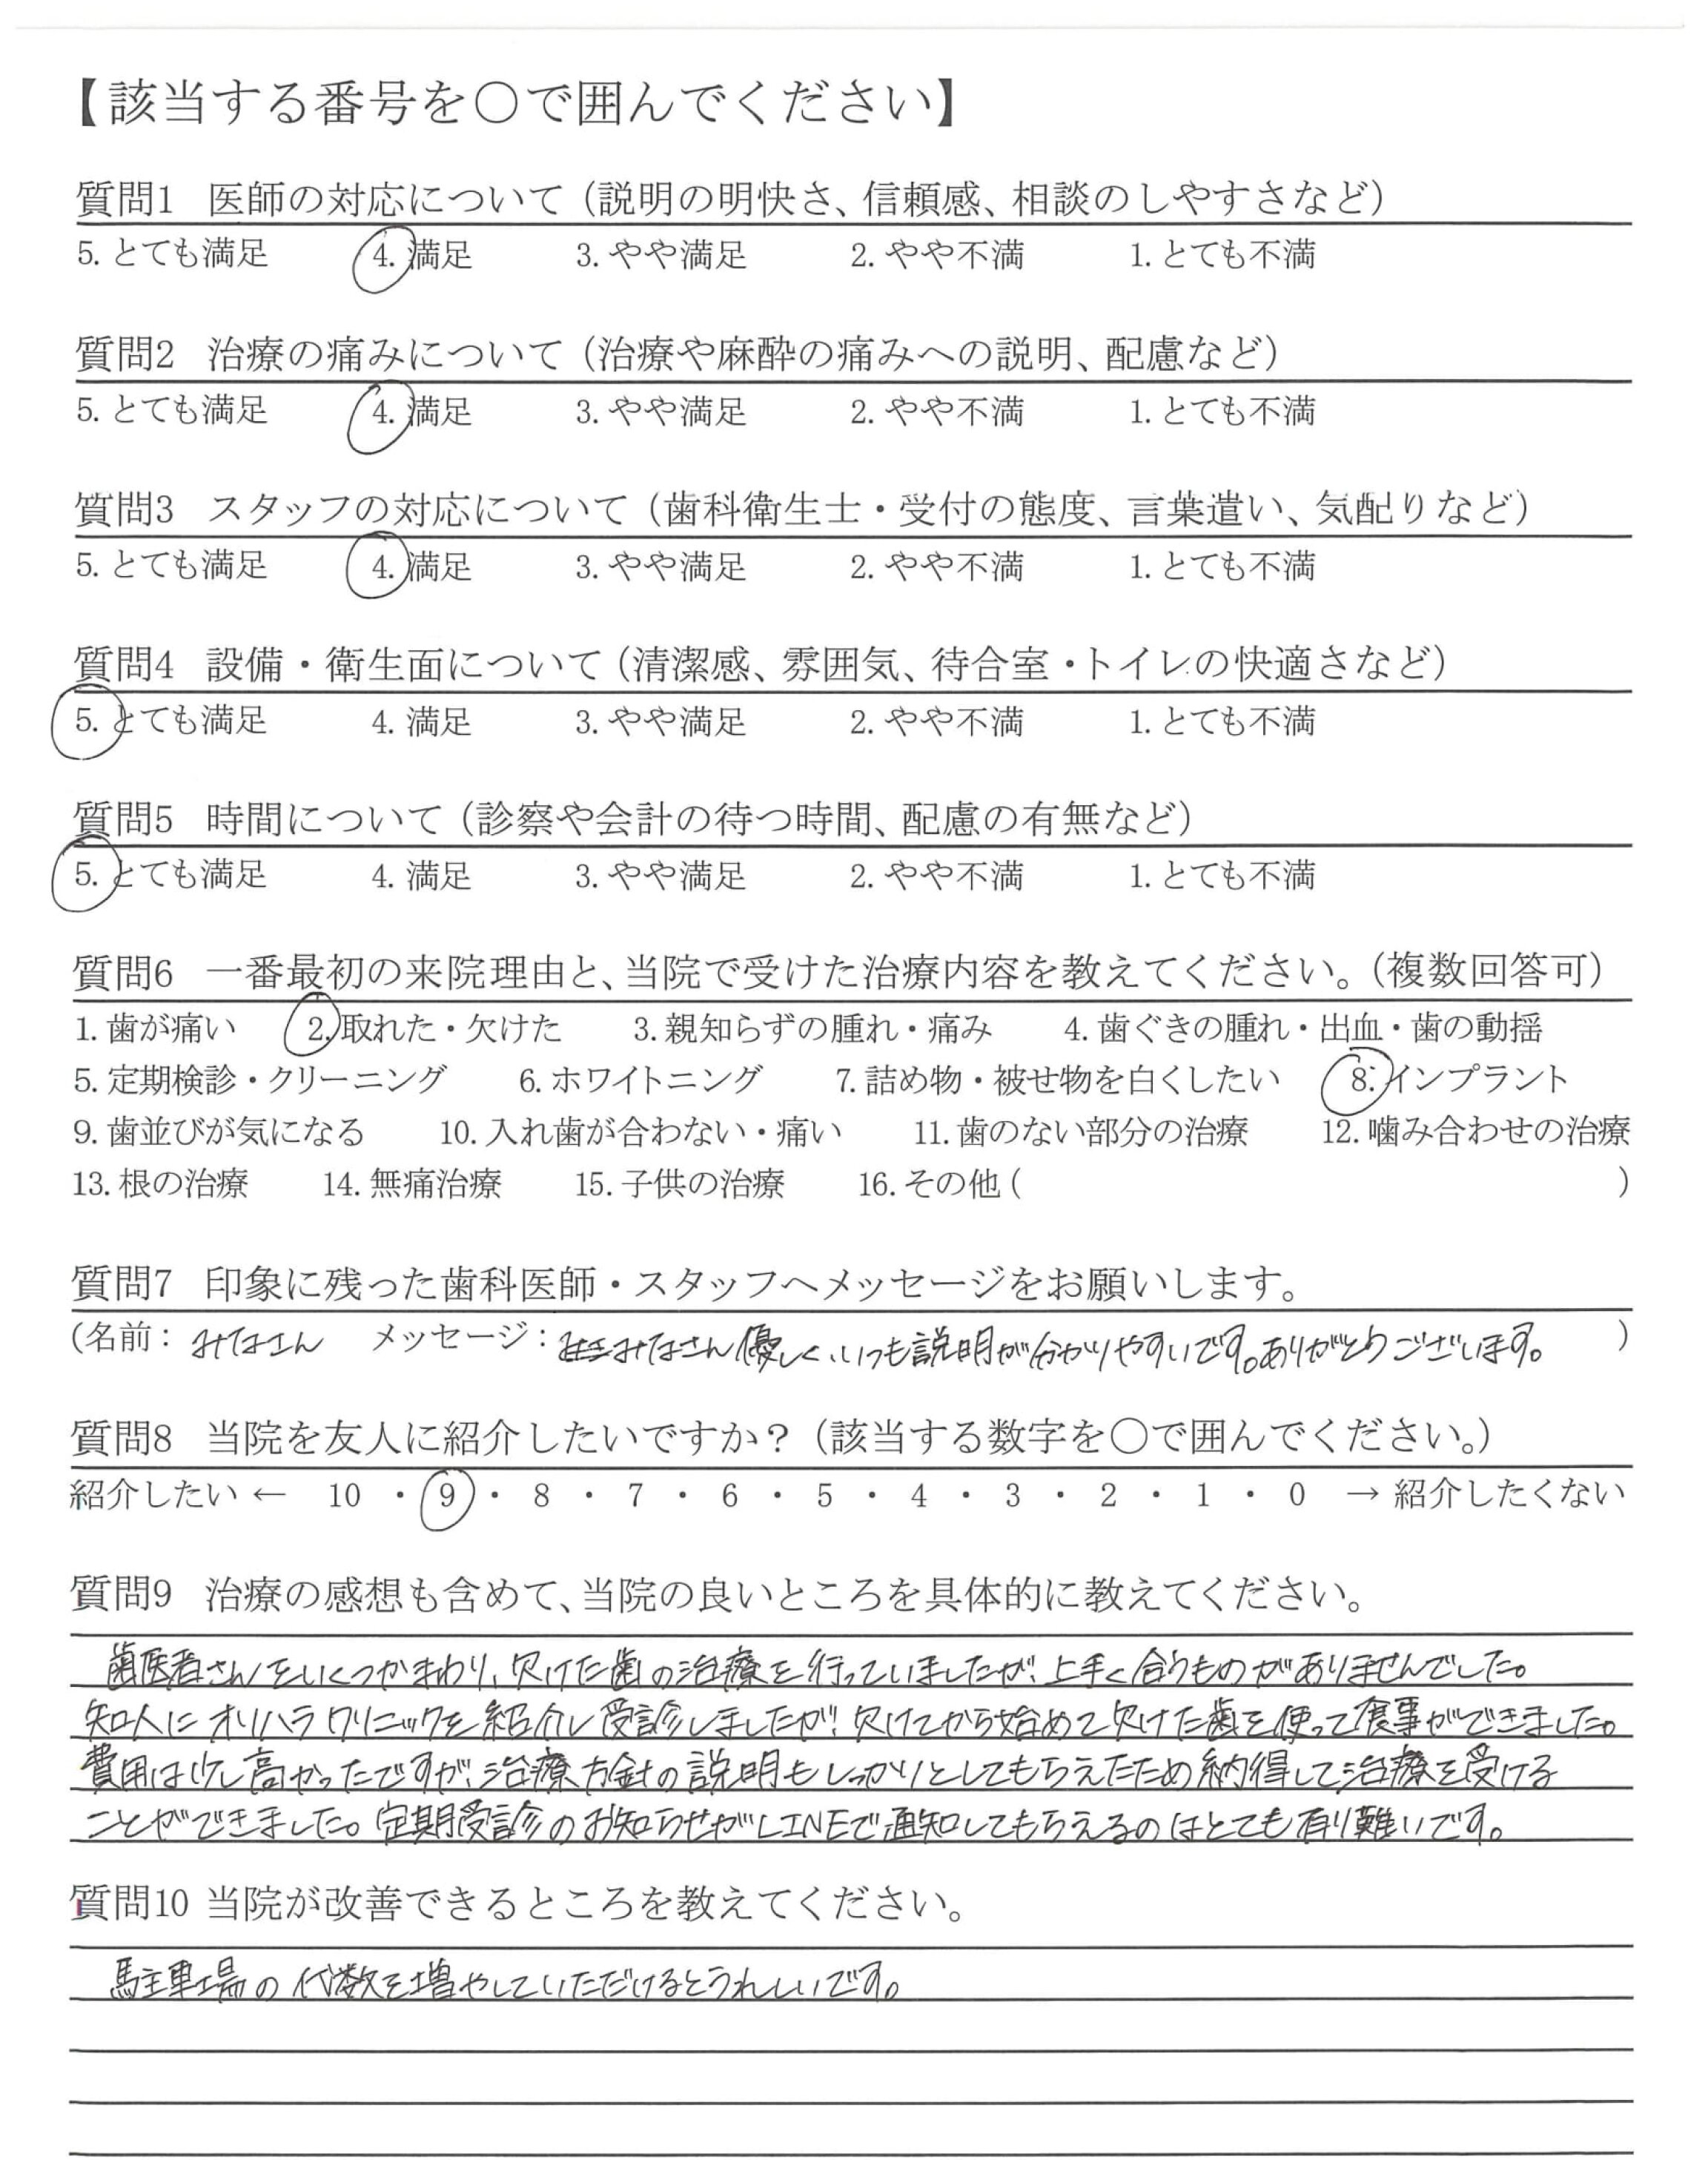 【該当する番号を○で囲んでください】
質問1 医師の対応について(説明の明快さ、信頼感、相談のしやすさなど)
5. とても満足 4. 満足 3. やや満足 2. やや不満 1. とても不満
質問2 治療の痛みについて(治療や麻酔の痛みへの説明、配慮など)
5. とても満足 4. 満足 3. やや満足 2. やや不満 1. とても不満
質問3 スタッフの対応について(歯科衛生士・受付の態度、言葉遣い、気配りなど)
5. とても満足 4. 満足 3. やや満足 2. やや不満 1. とても不満
質問4 設備・衛生面について(清潔感、雰囲気、待合室・トイレの快適さなど)
5. とても満足 4. 満足 3. やや満足 2. やや不満 1. とても不満
質問5 時間について(診察や会計の待つ時間、配慮の有無など)
5. とても満足 4. 満足 3. やや満足 2. やや不満 1. とても不満
質問6 一番最初の来院理由と、当院で受けた治療内容を教えてください。(複数回答可)
1. 歯が痛い 2. 取れた・欠けた 3. 親知らずの腫れ・痛み 4. 歯ぐきの腫れ・出血・歯の動揺
5. 定期検診・クリーニング 6. ホワイトニング 7. 詰め物・被せ物を白くしたい 8. インプラント
9. 歯並びが気になる 10. 入れ歯が合わない・痛い 11. 歯のない部分の治療 12. 噛み合わせの治療
13. 根の治療 14. 無痛治療 15. 子供の治療 16. その他( )
質問7 印象に残った歯科医師・スタッフへメッセージをお願いします。
(名前: みなさん メッセージ: みなさん優しく、いつも説明が分かりやすいです。ありがとうございます。 )
質問8 当院を友人に紹介したいですか?(該当する数字を○で囲んでください。)
紹介したい ← 10 ・ 9 ・ 8 ・ 7 ・ 6 ・ 5 ・ 4 ・ 3 ・ 2 ・ 1 ・ 0 → 紹介したくない
質問9 治療の感想も含めて、当院の良いところを具体的に教えてください。
歯医者さんをいくつかまわり、欠けた歯の治療を行っていましたが、上手く合うものがありませんでした。
知人にオリハラクリニックを紹介し受診しましたが、欠けてから始めて欠けた歯を使って食事ができました。
費用は少し高かったですが、治療方針の説明もしっかりとしてもらえたため納得して治療を受ける
ことができました。定期受診のお知らせがLINEで通知してもらえるのはとても有り難いです。
質問10 当院が改善できるところを教えてください。
駐車場の代数を増やしていただけるとうれしいです。